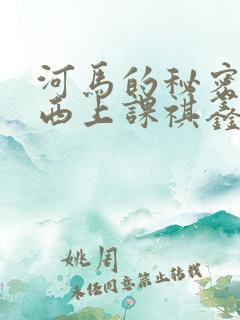 河馬的秘密
西上課祺鑫
姚周
未任同意禁止转载